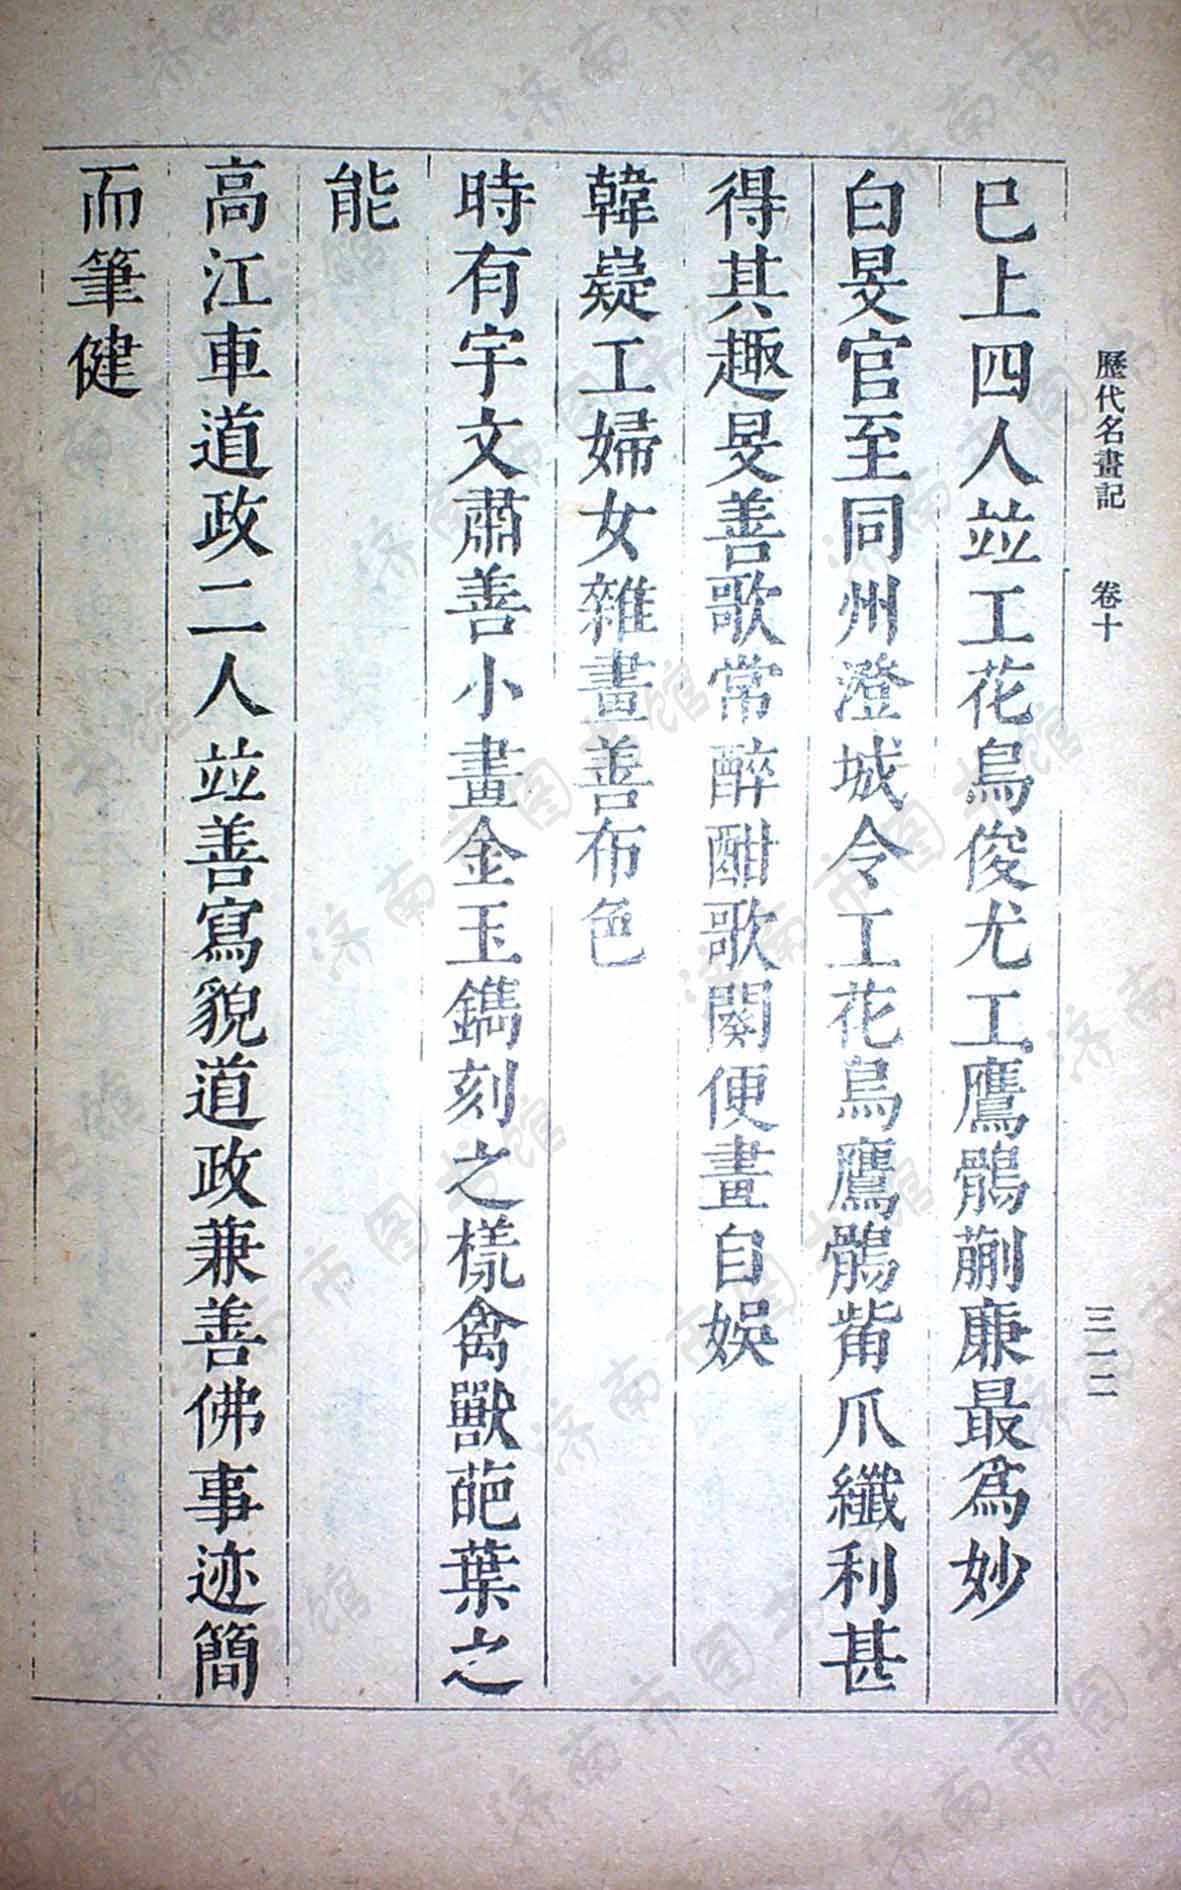 歷代名畫記　卷十　三一二
已上四人竝工花鳥俊尤工鷹鶻蒯廉最爲妙
白旻官至同州澄城令工花鳥鷹鶻觜爪纖利甚
得其趣旻善歌常醉酣歌闋便畫自娛
韓嶷工婦女雜畫善布色
時有宇文肅善小畫金玉鐫刻之樣禽獸葩葉之
能
高江車道政二人竝善寫貌道政兼善佛事迹簡
而筆健
济南市图书馆